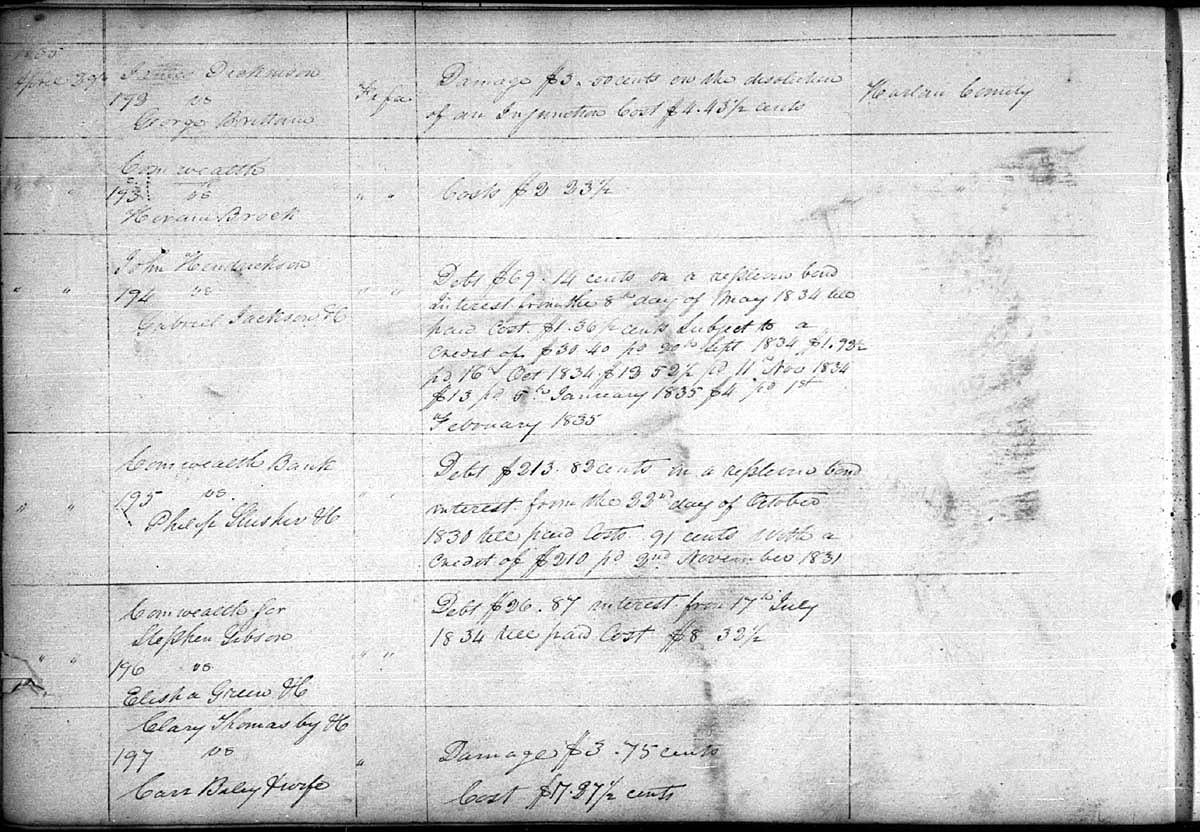 1835
April 29th James Dickinson
192 vs
George Brittain
Fi fa
Damage $3.00 cents on the desolution
of an Injunction Cost $4.43½ cents
Harlan County
" " Comwealth
193 vs
Hiram Brock
" "
Costs $2 23½
John Hendrickson
" " 194 vs
Gabriel Jackson &C
" "
Debt $69.14 cents on a replevin bond
Interest from the 8th day of May 1834 till
paid Cost $1.36½ cents Subject to a
credit of $30.40 pd 20th Sept 1834 $1.93½
pd 16th Oct 1834 $13 52½ pd 11th Nov 1834
$13 pd 5th January 1835 $4 pd 1st
February 1835
Comwealth Bank
" " 195 vs
Philip Slusher &C
" "
Debt $213.83 cents on a replevin bond
interest from the 22nd day of October
1830 till paid Costs 91 cents with a
credit of $210 pd 2nd November 1831
Comwealth for
Stephen Gibson
" " 196 vs
Elisha Green &C
" "
Debt $26.87 interest from 17th July
1834 till paid Cost $8 32½
Clary Thomas by &C
197 vs
Carr Baley & wife
"
Damage $3.75 cents
Cost $17.27½ cents